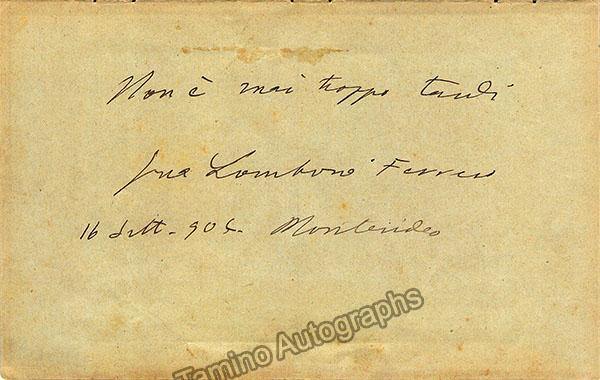 Non è mai troppo tardi
Ina Lombroso Ferrero
16 Sett. 906. Montevideo
Tamino Autographs